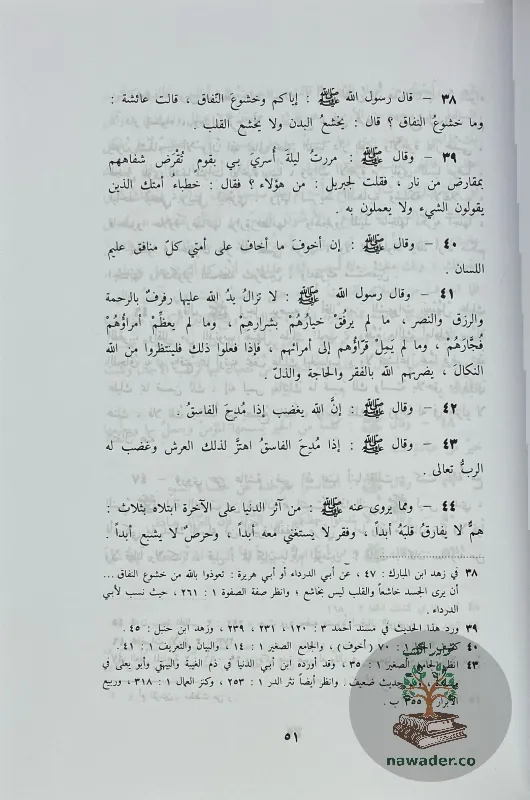 ٣٨ – قال رسول الله ﷺ : إياكم وخشوعَ النّفاق ، قالت عائشة :
وما خشوعُ النفاق ؟ قال : يخشعُ البدن ولا يخشع القلب .
٣٩ – وقال ﷺ : مررتُ ليلةَ أُسريَ بي بقوم تُقْرَض شفاههم
بمقارض من نار ، فقلت لجبريل : من هؤلاء ؟ فقال : خُطباءُ أمتك الذين
يقولون الشيء ولا يعملون به .
٤٠ – وقال ﷺ : إن أخوفَ ما أخاف على أمتي كلّ منافق عليم
اللسان .
٤١ – وقال رسول الله ﷺ : لا تزالُ يدُ الله عليها رفرفٌ بالرحمة
والرزق والنصر ، ما لم يرفُقْ خيارُهُمْ بشرارهِمْ ، وما لم يعظِّمْ أمراؤُهُمْ
فُجَّارَهُمْ ، وما لم يَمِلْ قرّاؤُهم إلى أمرائهم ، فإذا فعلوا ذلك فلينتظروا من الله
النكالَ ، يضربهم الله بالفقر والحاجة والذلّ .
٤٢ – وقال ﷺ : إنَّ الله يغضب إذا مُدِحَ الفاسقُ .
٤٣ – وقال ﷺ : إذا مُدِحَ الفاسقُ اهتزَّ لذلك العرش وغضب له
الربُّ تعالى .
٤٤ – ومما يروى عنه ﷺ : من آثر الدنيا على الآخرة ابتلاه بثلاث :
همٌّ لا يفارقُ قلبَهُ أبداً ، وفقر لا يستغني معه أبداً ، وحرصٌ لا يشبع أبداً .
٣٨ في زهد ابن المبارك : ٤٧ ، عن أبي الدرداء أو أبي هريرة : تعوذوا بالله من خشوع النفاق ...
أن يرى الجسد خاشعاً والقلب ليس بخاشع ، وانظر صفة الصفوة ١ : ٢٦١ ، حيث نسب لأبي
الدرداء .
٣٩ ورد هذا الحديث في مسند أحمد ٣ : ١٢٠ ، ٢٣١ ، ٢٣٩ ، وزهد ابن حنبل : ٤٥ .
٤٠ ١ : ٧٠ (أخوف) ، والجامع الصغير ١ : ١٤ ، والبيان والتعريف ١ : ٤١ .
٤٣ انظر الجامع الصغير ١ : ٣٥ ، وقد أورده ابن أبي الدنيا في ذم الغيبة والبيهقي وأبو يعلى في
حديث ضعيف . وانظر أيضاً نثر الدر ١ : ٢٥٣ ، وكنز العمال ١ : ٣١٨ ، وربيع
الأبرار ٣٥٥ ب .
٥١
نوادر الكتب
nawader.co